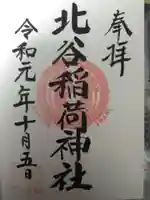 奉拝
北谷稲荷神社
令和元年十月五日